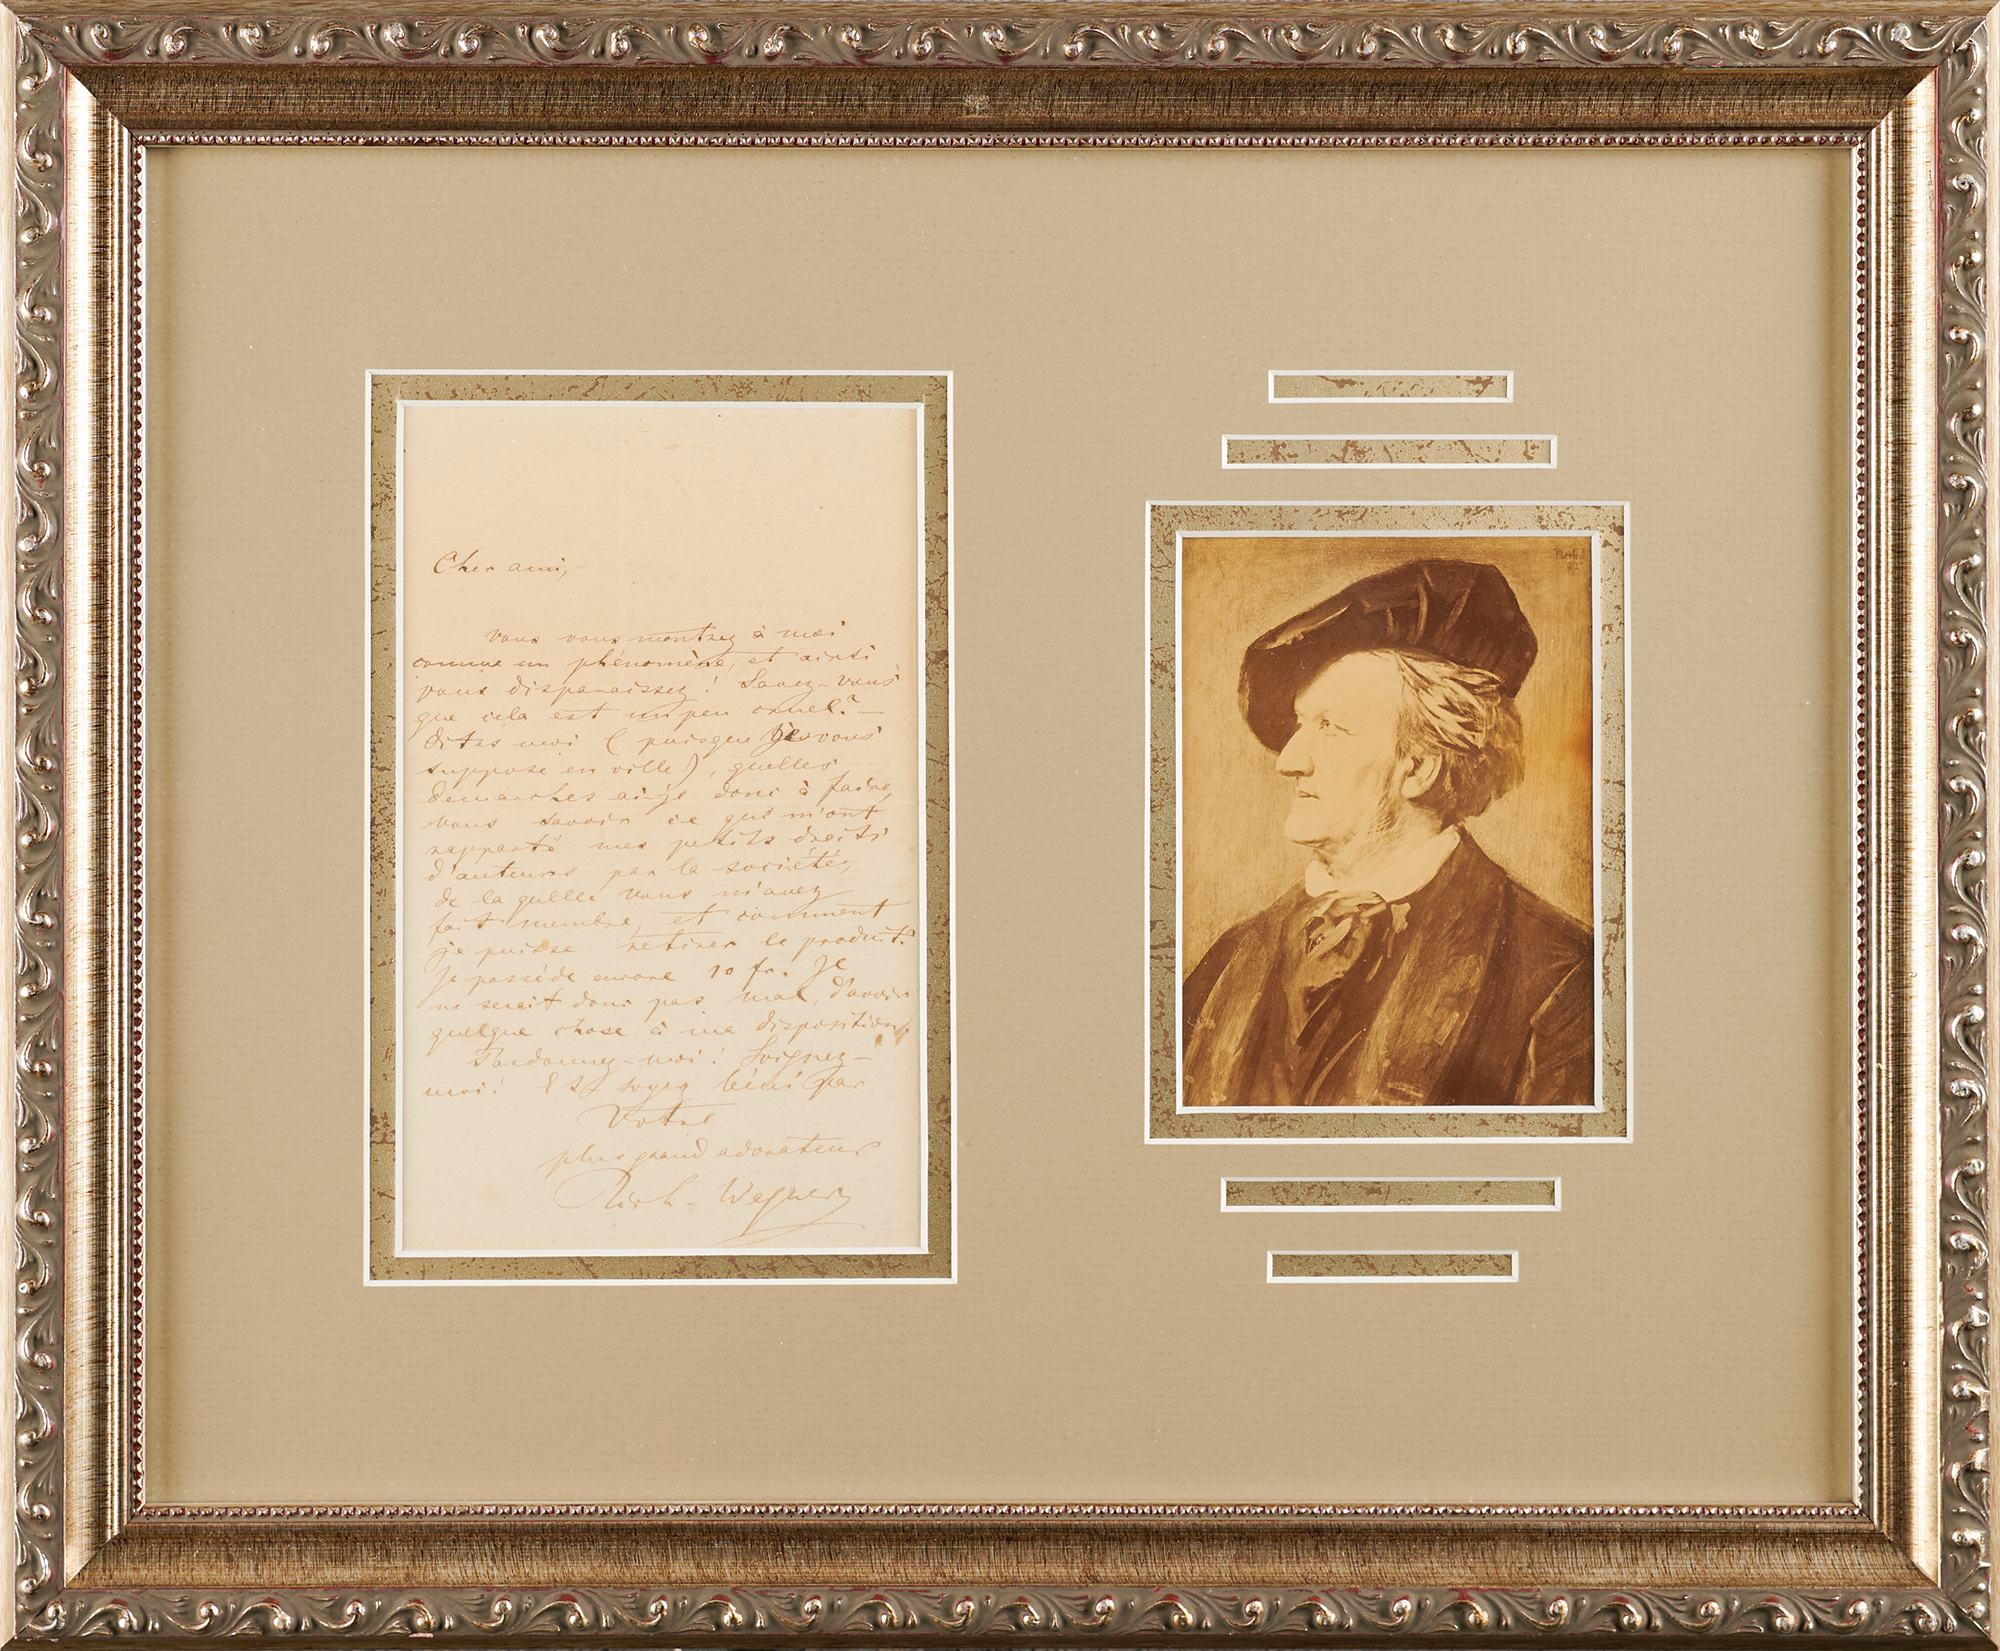 Cher ami,
Vous vous montrez à moi
comme un phénomène, et ainsi
vous disparaissez! Savez-vous
que cela est un peu cruel? —
Dites moi (puisque je vous
suppose en ville), quelles
demarches ai-je donc à faire,
vous savoir ce que m'ont
rapporté mes petits droits
d'auteurs par la société,
de laquelle vous m'avez
fait membre, et comment
je puisse retirer le produit.
Je possède encore 10 fr. Je
ne serait donc pas mal, d'avoir
quelque chose à ma disposition.
Pardonnez-moi! Soignez-
moi! Et soyez béni par
Votre
plus grand adorateur
Rich. Wagner